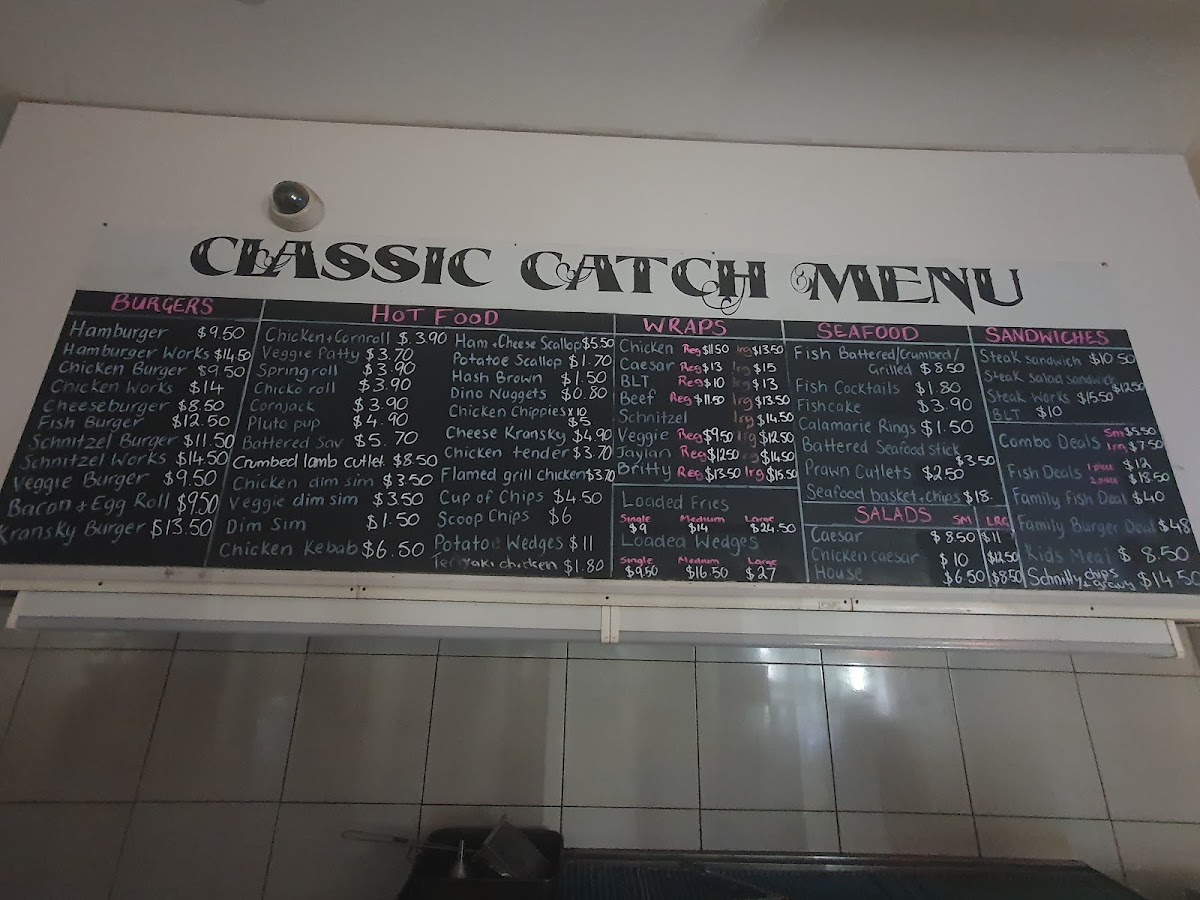 CLASSIC CATCH MENU
BURGERS
Hamburger $9.50
Hamburger Works $14.50
Chicken Burger $9.50
Chicken Works $14
Cheeseburger $8.50
Fish Burger $12.50
Schnitzel Burger $11.50
Schnitzel Works $14.50
Veggie Burger $9.50
Bacon + Egg Roll $9.50
Kransky Burger $13.50
HOT FOOD
Chicken + Cornroll $3.90
Veggie Patty $3.70
Spring roll $3.90
Chicko roll $3.90
Cornjack $3.90
Pluto pup $4.90
Battered Sav $5.70
Crumbed lamb cutlet $8.50
Chicken dim sim $3.50
Veggie dim sim $3.50
Dim Sim $1.50
Chicken Kebab $6.50
Ham + Cheese Scallop $5.50
Potatoe Scallop $1.70
Hash Brown $1.50
Dino Nuggets $0.80
Chicken Chippies x 10
$5
Cheese Kransky $4.90
Chicken tender $3.70
Flamed grill chicken $3.70
Cup of Chips $4.50
Scoop Chips $6
Potatoe Wedges $11
Teriyaki chicken $1.80
WRAPS
Chicken Reg $11.50 lrg $13.50
Caesar Reg $13 lrg $15
BLT Reg $10 lrg $13
Beef Reg $11.50 lrg $13.50
Schnitzel lrg $14.50
Veggie Reg $9.50 lrg $12.50
Jaylan Reg $12.50 lrg $14.50
Britty Reg $13.50 lrg $15.50
Loaded Fries
Single Medium Large
$9 $14 $24.50
Loaded Wedges
Single Medium Large
$9.50 $16.50 $27
SEAFOOD
Fish Battered/Crumbed/
Grilled $8.50
Fish Cocktails $1.80
Fishcake $3.90
Calamarie Rings $1.50
Battered Seafood stick
$3.50
Prawn Cutlets $2.50
Seafood basket + chips $18.
SALADS SM LRG
Caesar $8.50 $11
Chicken caesar $10 $12.50
House $6.50 $8.50
SANDWICHES
Steak sandwich $10.50
Steak Salad sandwich
$12.50
Steak Works $15.50
BLT $10
Combo Deals Sm $5.50
lrg $7.50
Fish Deals 1 piece $12
2 piece $18.50
Family Fish Deal $40
Family Burger Deal $48
Kids Meal $8.50
Schnitty chips + gravy $14.50